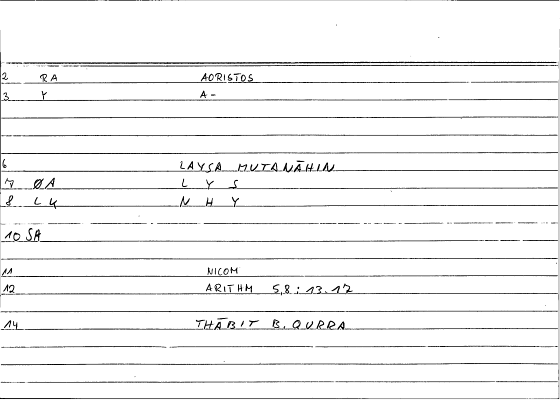 2 RA AORISTOS
3 Y A-
6 LAYSA MUTANĀHIN
7 ØA L Y S
8 L4 N H Y
10 SA
11 NICOM
12 ARITHM 5,8 : 13.17
14 THĀBIT B. QURRA